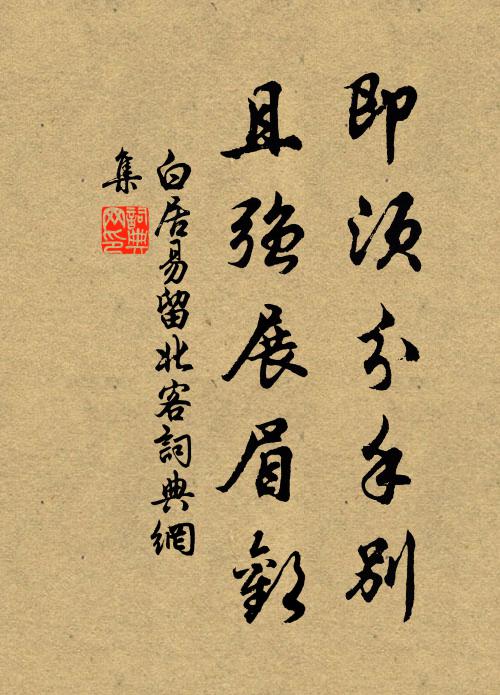 即須分手別
且強展眉歡
白居易留北客詞典網
集
詞典
网印